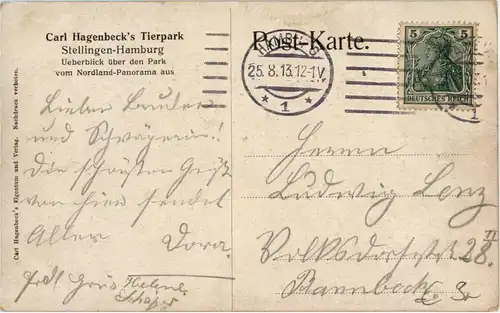 Carl Hagenbeck's Tierpark
Stellingen-Hamburg
Ueberblick über den Park
vom Nordland-Panorama aus
Carl Hagenbeck's Eigentum und Verlag. Nachdruck verboten.
Post-Karte.
HAMBURG
25.8.13.12-1V.
* 1 *
5 5
DEUTSCHES REICH
1
Lieber Bruder
und Schwägerin!
Die schönsten Grüße
von hier sendet
Dora.
Gruß Helene
Schäfer
Herrn
Ludwig Lenz
Volksdorferstr 28. II
Barmbeck